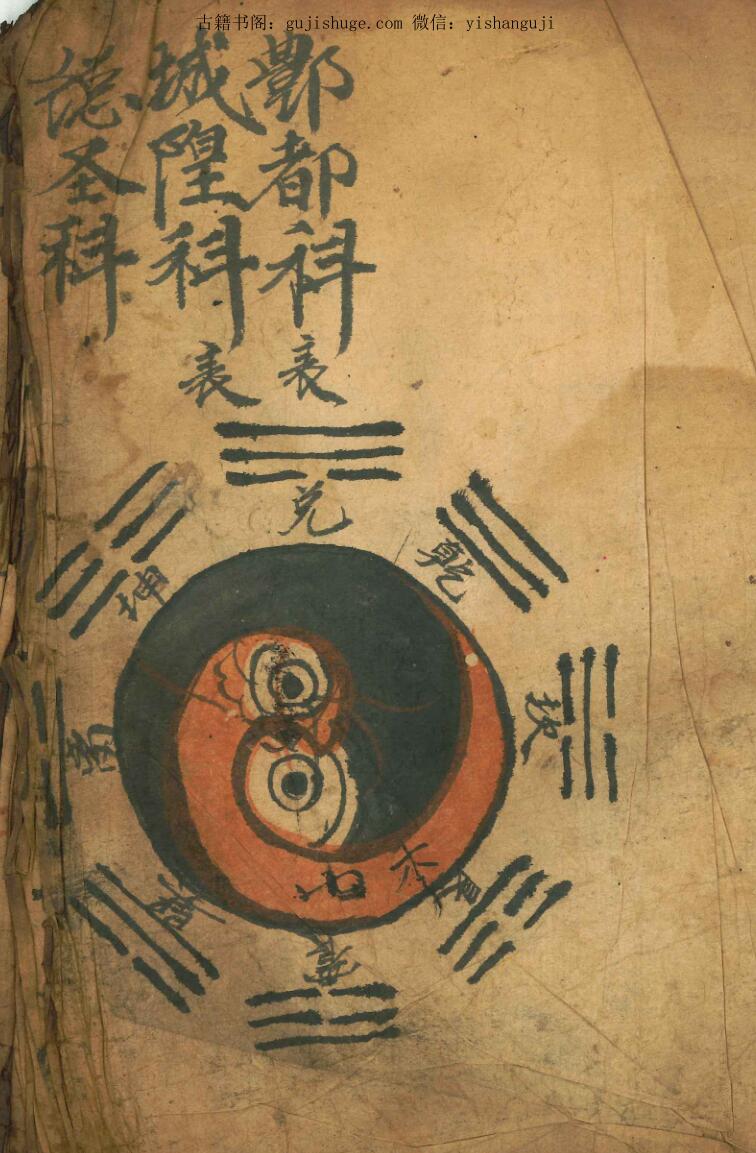 古籍书阁：gujishuge.com 微信：yishanguji
酆都科表
城隍科表
圣科
兑
乾
坎
艮
震
巽
离
坤